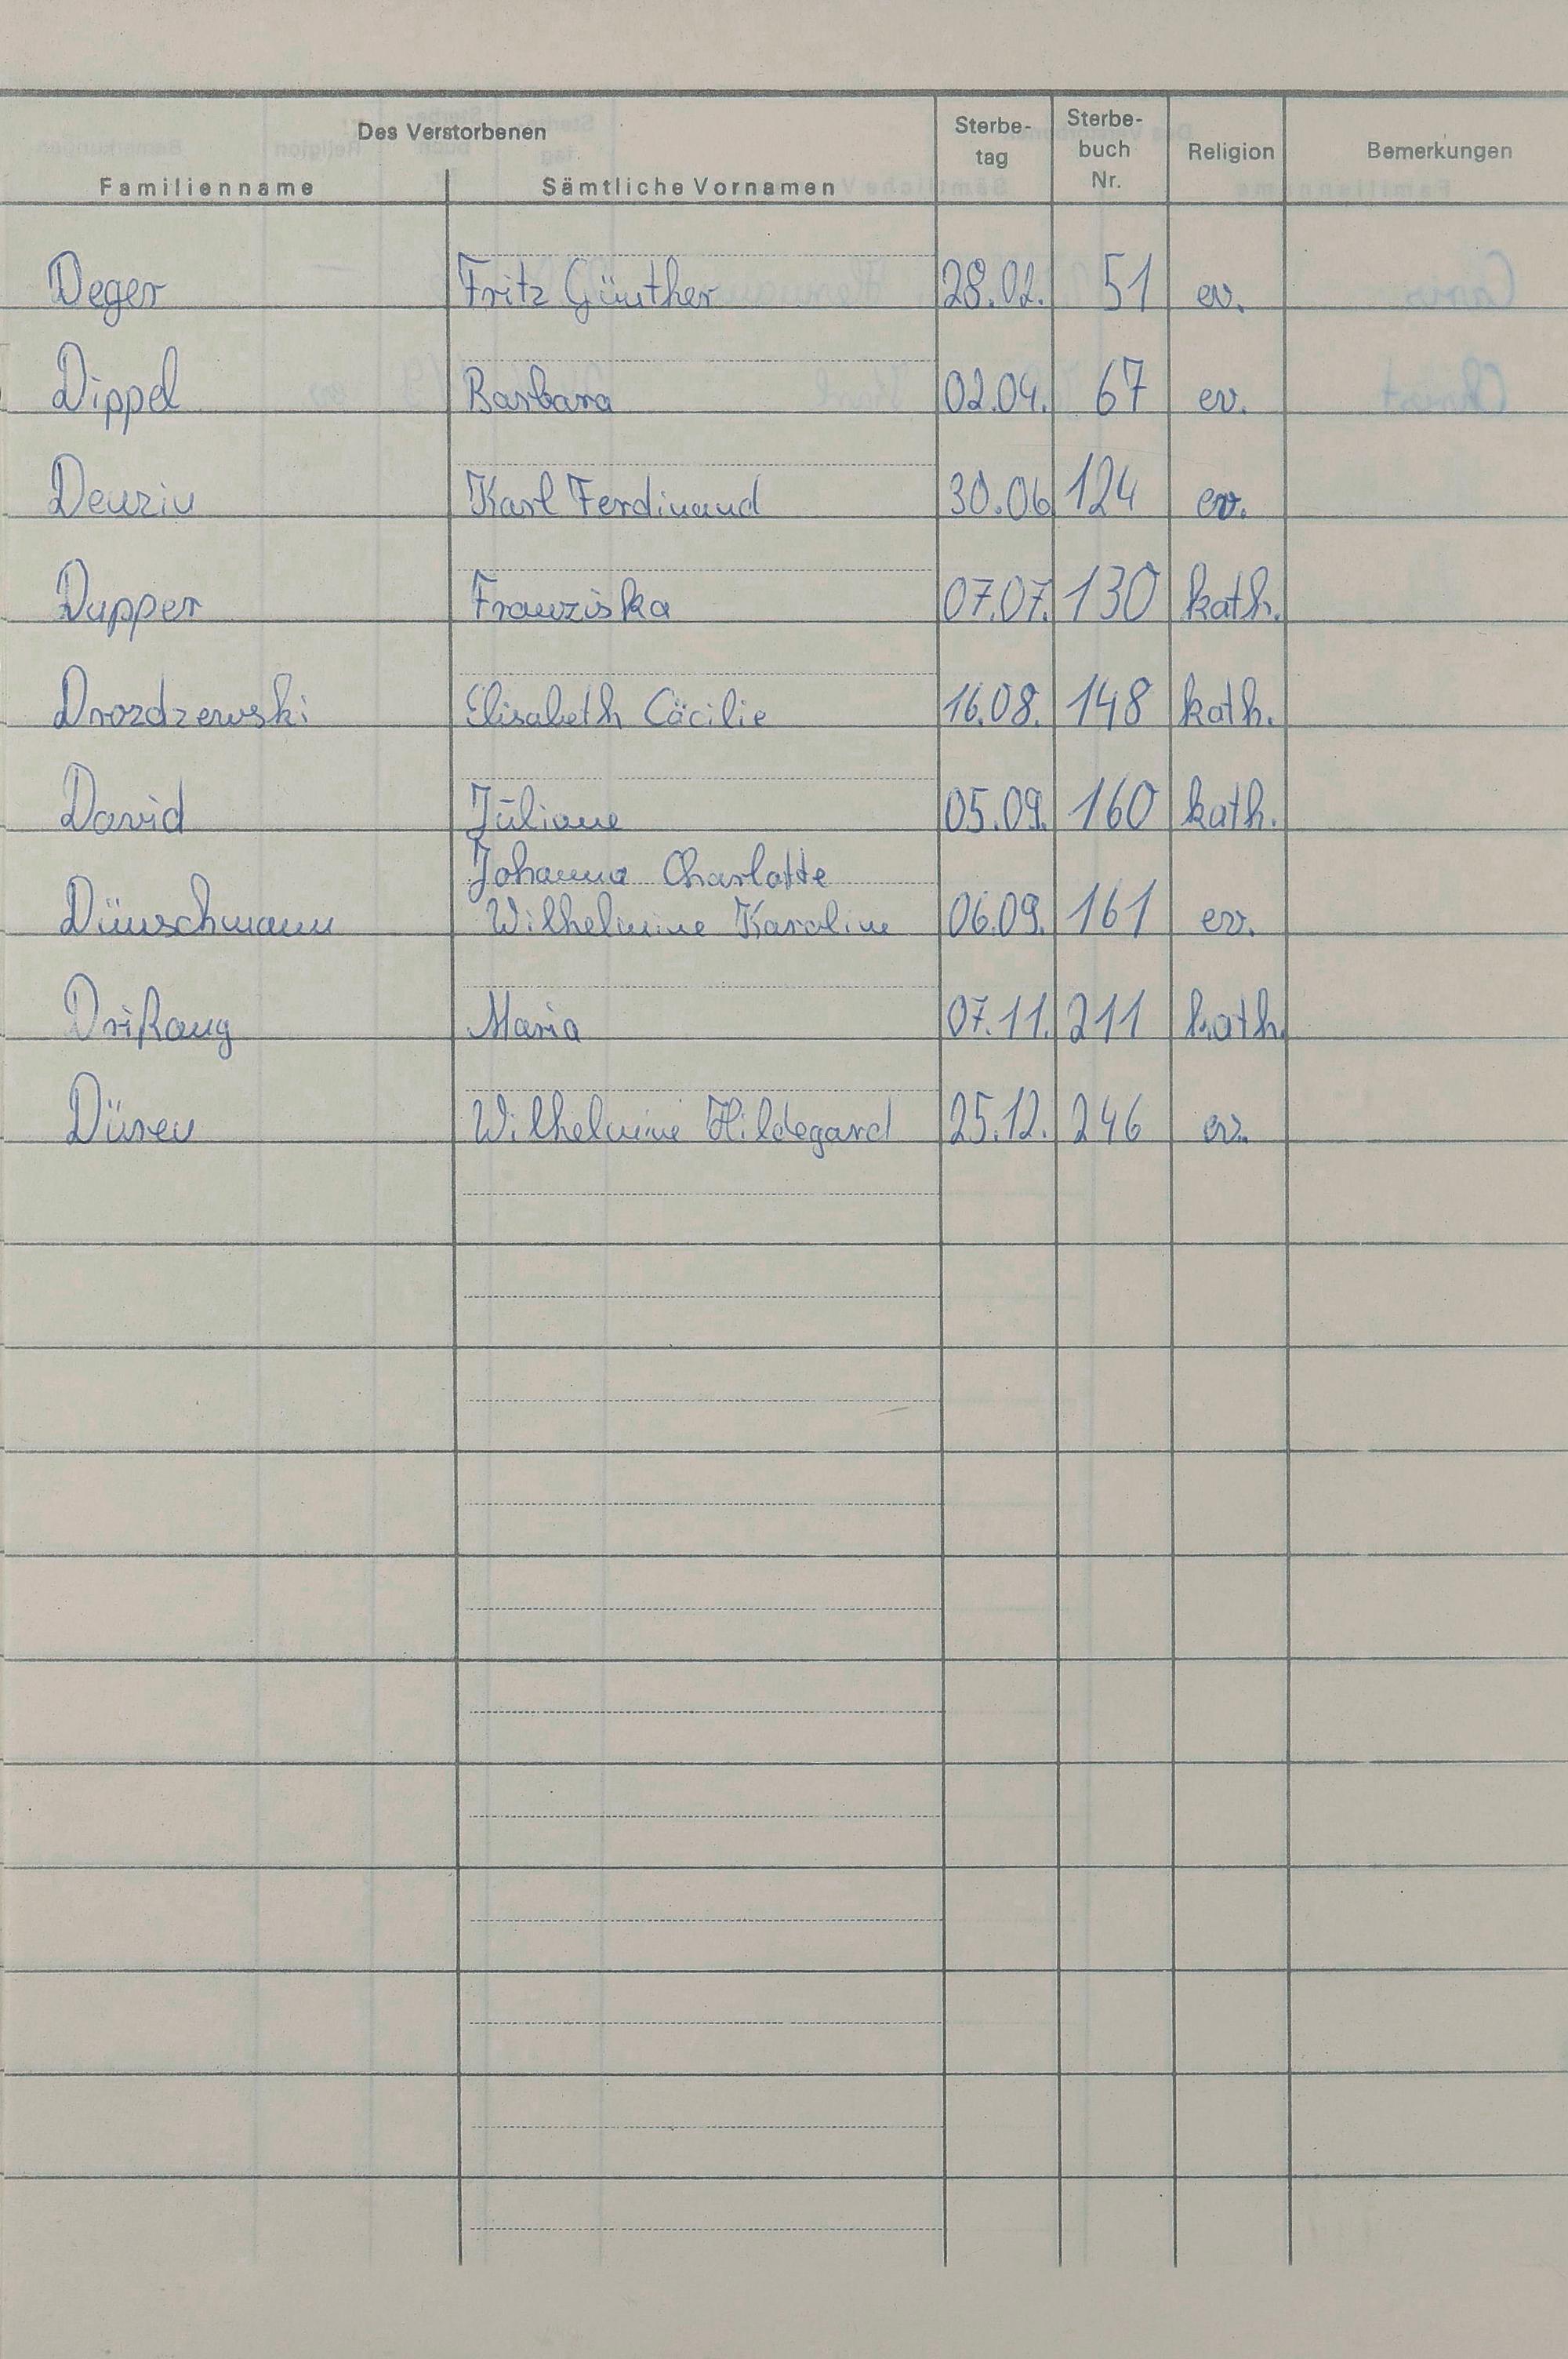 Des Verstorbenen
Familienname Sämtliche Vornamen Sterbe-tag Sterbe-buch Nr. Religion Bemerkungen
Deger Fritz Günther 28.02. 51 ev.
Dippel Barbara 02.04. 67 ev.
Denzin Karl Ferdinand 30.06 124 ev.
Dupper Franziska 07.07. 130 kath.
Drozdzewski Elisabeth Cäcilie 16.08. 148 kath.
David Juliane 05.09. 160 kath.
Johanna Charlotte
Dünschmann Wilhelmine Karoline 06.09. 161 ev.
Drißang Maria 07.11. 211 kath.
Düren Wilhelmine Hildegard 25.12. 246 ev.